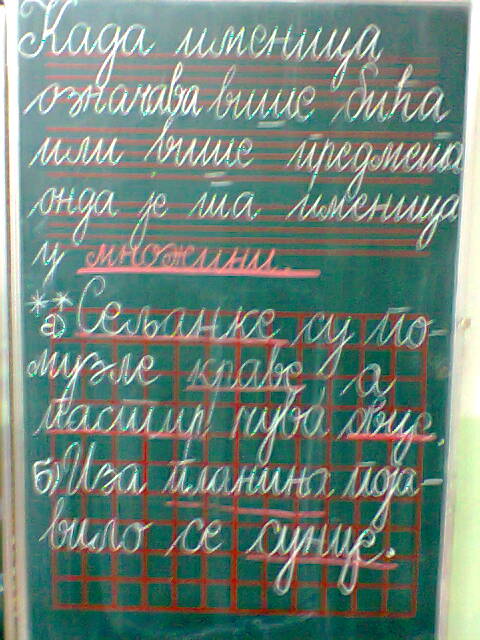 Када именица
означава више бића
или више предмета
онда је та именица
у множини.
***
а) Сељанке су по-
музле краве а
пастир чува овце.
б) Иза планина поја-
вило се сунце.